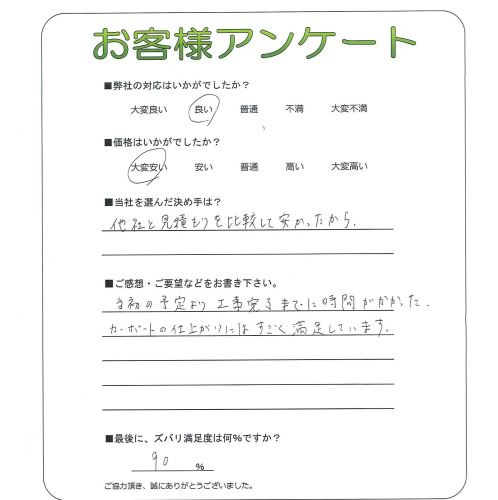 お客様アンケート
■弊社の対応はいかがでしたか？
大変良い 良い 普通 不満 大変不満
■価格はいかがでしたか？
大変安い 安い 普通 高い 大変高い
■当社を選んだ決め手は？
他社と見積もりを比較して安かったから.
■ご感想・ご要望などをお書き下さい。
当初の予定より工事完了までに時間がかかった.
カーポートの仕上がりにはすごく満足しています.
■最後に、ズバリ満足度は何%ですか？
90 %
ご協力頂き、誠にありがとうございました。